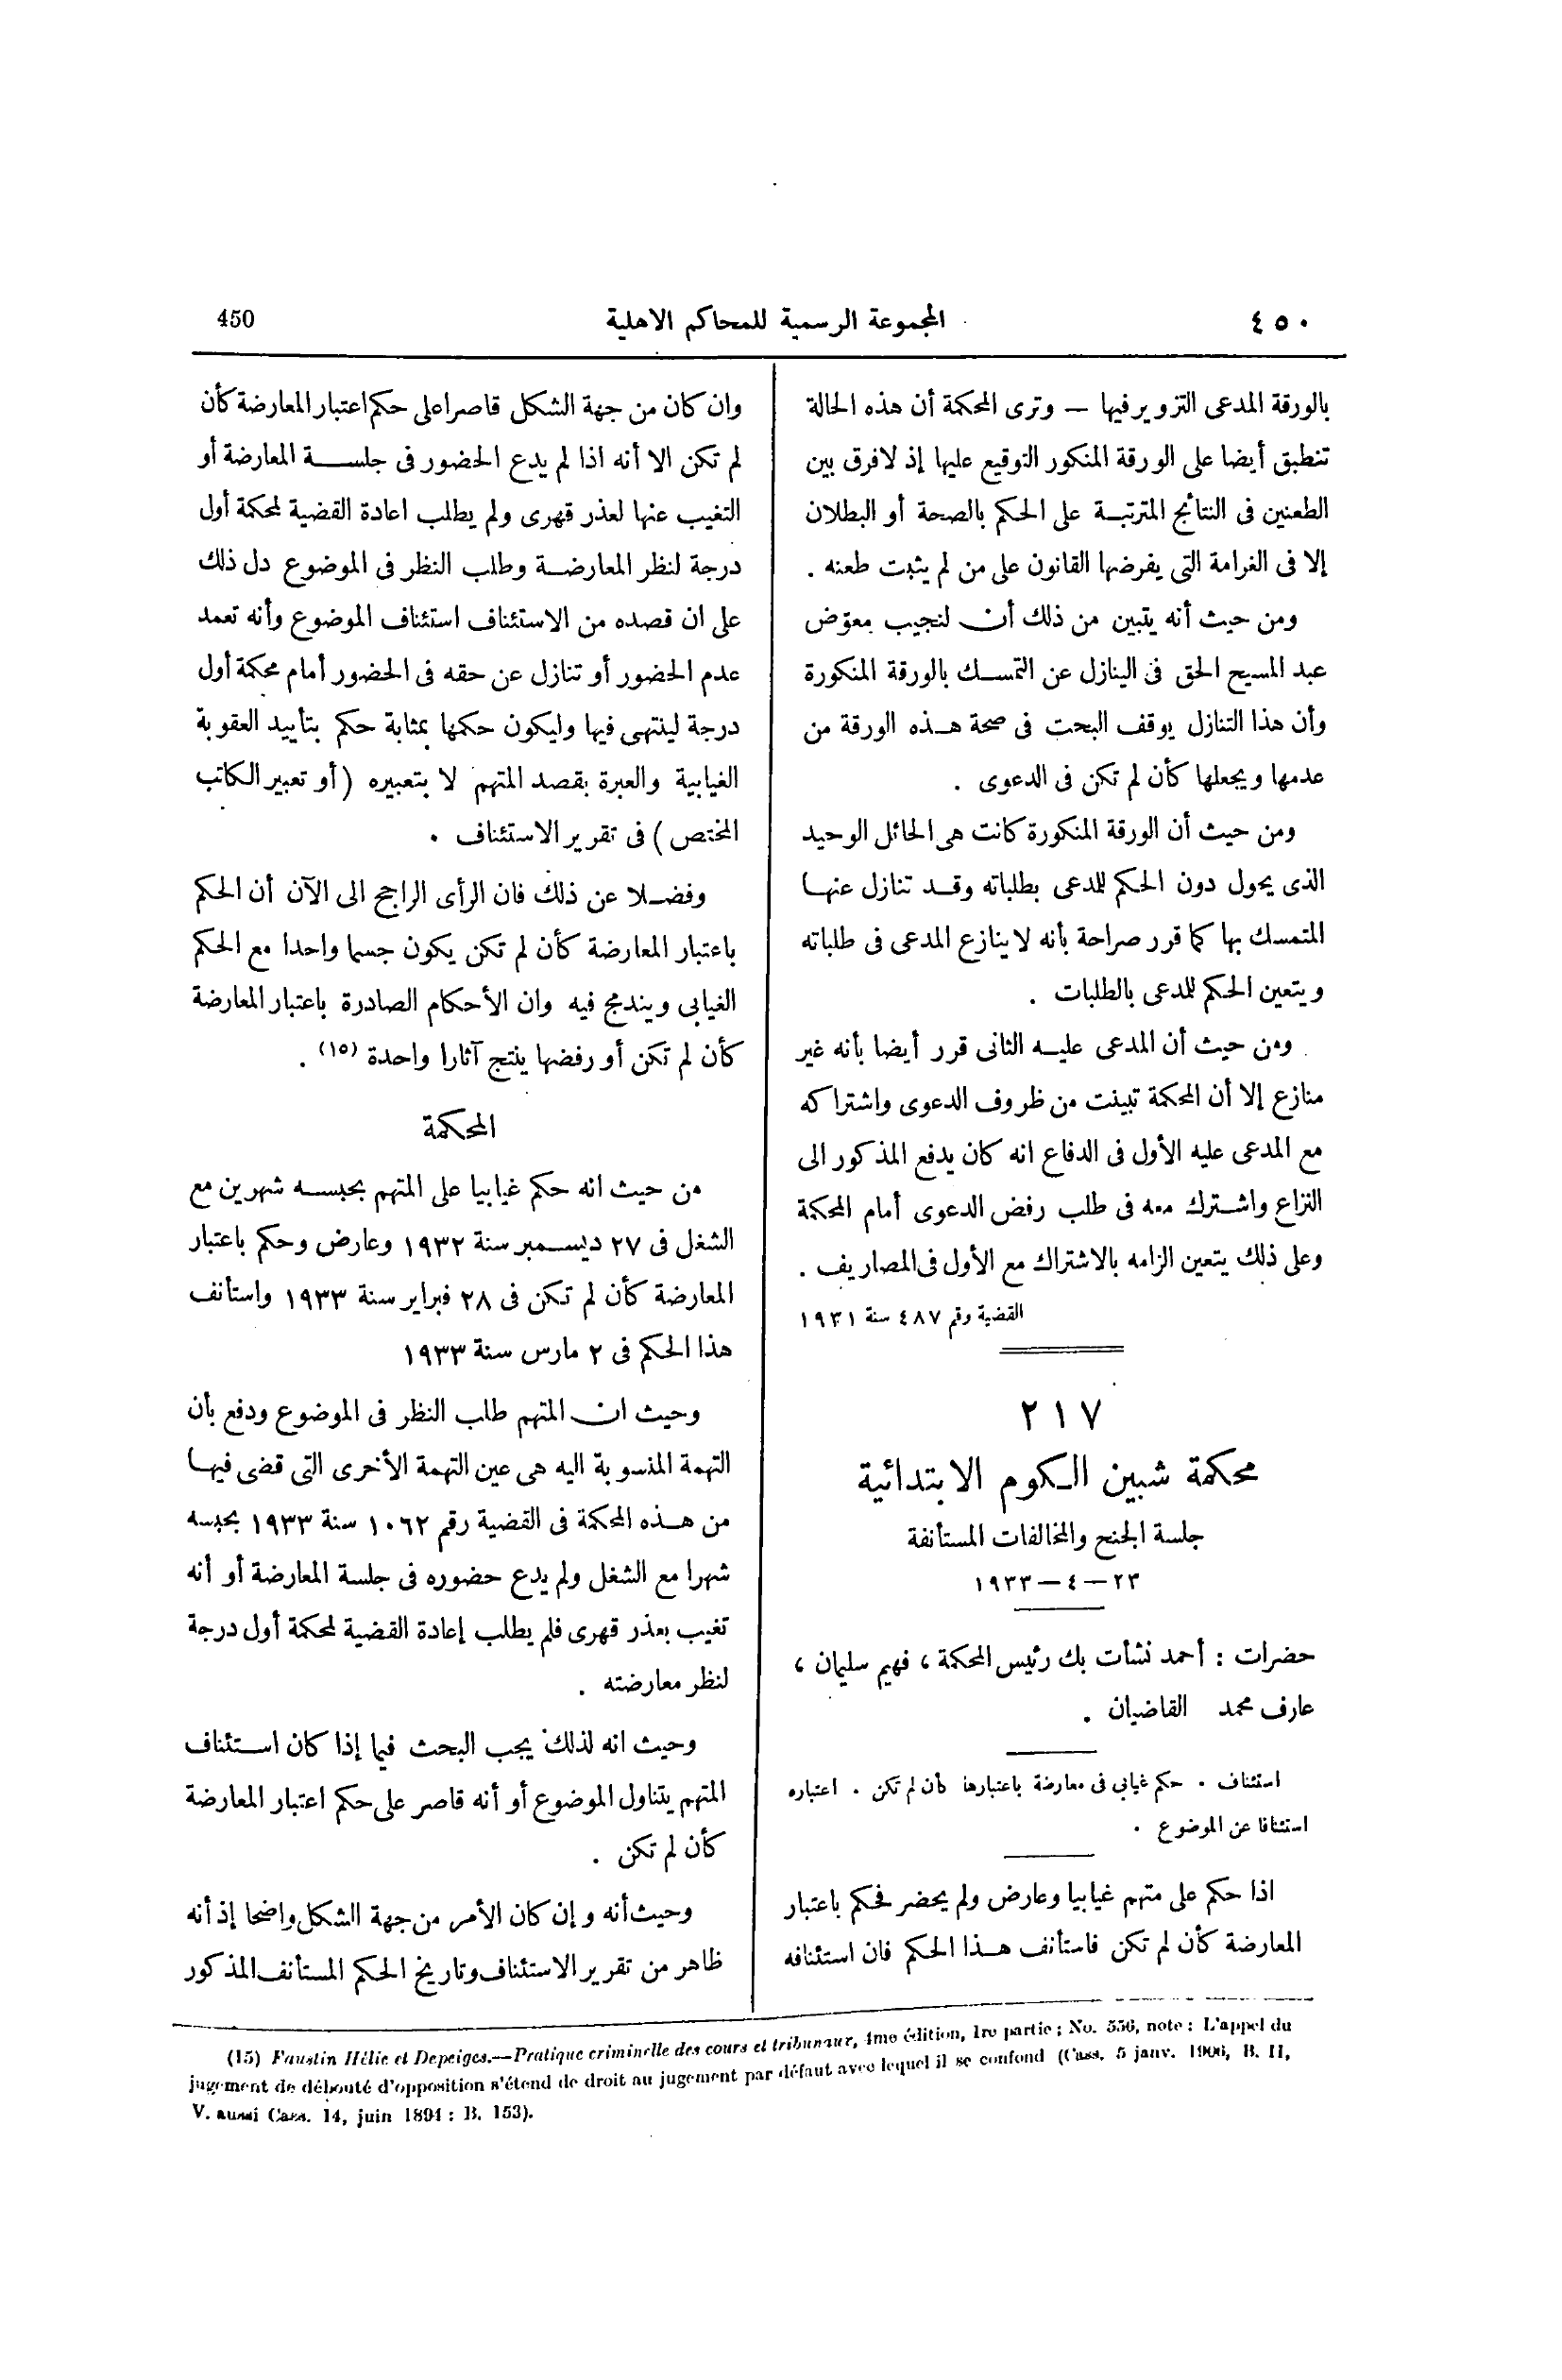 ٤٥٠
المجموعة الرسمية للمحاكم الاهلية
450
بالورقة المدعى التزوير فيها — وترى المحكمة أن هذه الحالة
تنطبق أيضا على الورقة المنكور التوقيع عليها إذ لا فرق بين
الطعنين فى النتائج المترتبة على الحكم بالصحة أو البطلان
إلا فى الغرامة التى يفرضها القانون على من لم يثبت طعنه .
ومن حيث أنه يتبين من ذلك أن لنجيب معوّض
عبد المسيح الحق فى الينازل عن التمسك بالورقة المنكورة
وأن هذا التنازل يوقف البحث فى صحة هذه الورقة من
عدمها ويجعلها كأن لم تكن فى الدعوى .
ومن حيث أن الورقة المنكورة كانت هى الحائل الوحيد
الذى يحول دون الحكم للمدعى بطلباته وقد تنازل عنها
المتمسك بها كما قرر صراحة بأنه لا ينازع المدعى فى طلباته
ويتعين الحكم للمدعى بالطلبات .
ومن حيث أن المدعى عليه الثانى قرر أيضا بأنه غير
منازع إلا أن المحكمة تبينت من ظروف الدعوى واشتراكه
مع المدعى عليه الأول فى الدفاع انه كان يدفع المذكور الى
النزاع واشترك معه فى طلب رفض الدعوى أمام المحكمة
وعلى ذلك يتعين الزامه بالاشتراك مع الأول فى المصاريف .
القضية رقم ٤٨٧ سنة ١٩٣١
٢١٧
محكمة شبين الكوم الابتدائية
جلسة الجنح والمخالفات المستأنفة
٢٣ — ٤ — ١٩٣٣
حضرات : أحمد نشأت بك رئيس المحكمة ، فهيم سليمان ،
عارف محمد القاضيان .
استئناف . حكم غيابى فى معارضة باعتبارها كأن لم تكن . اعتباره
استئنافا عن الموضوع .
اذا حكم على متهم غيابيا وعارض ولم يحضر فحكم باعتبار
المعارضة كأن لم تكن فاستأنف هذا الحكم فان استئنافه
وان كان من جهة الشكل قاصرا على حكم اعتبار المعارضة كأن
لم تكن الا أنه اذا لم يدع الحضور فى جلسة المعارضة أو
التغيب عنها لعذر قهرى ولم يطلب اعادة القضية لمحكمة أول
درجة لنظر المعارضة وطلب النظر فى الموضوع دل ذلك
على ان قصده من الاستئناف استئناف الموضوع وأنه تعمد
عدم الحضور أو تنازل عن حقه فى الحضور أمام محكمة أول
درجة لينتهى فيها وليكون حكمها بمثابة حكم بتأييد العقوبة
الغيابية والعبرة بقصد المتهم لا بتعبيره (أو تعبير الكاتب
المختص) فى تقرير الاستئناف .
وفضلا عن ذلك فان الرأى الراجح الى الآن أن الحكم
باعتبار المعارضة كأن لم تكن يكون جسما واحدا مع الحكم
الغيابى ويندمج فيه وان الأحكام الصادرة باعتبار المعارضة
كأن لم تكن أو رفضها ينتج آثارا واحدة (١٥) .
المحكمة
من حيث انه حكم غيابيا على المتهم بحبسه شهرين مع
الشغل فى ٢٧ ديسمبر سنة ١٩٣٢ وعارض وحكم باعتبار
المعارضة كأن لم تكن فى ٢٨ فبراير سنة ١٩٣٣ واستأنف
هذا الحكم فى ٢ مارس سنة ١٩٣٣
وحيث ان المتهم طلب النظر فى الموضوع ودفع بأن
التهمة المنسوبة اليه هى عين التهمة الأخرى التى قضى فيها
من هذه المحكمة فى القضية رقم ١٠٦٢ سنة ١٩٣٣ بحبسه
شهرا مع الشغل ولم يدع حضوره فى جلسة المعارضة أو أنه
تغيب بعذر قهرى فلم يطلب إعادة القضية لمحكمة أول درجة
لنظر معارضته .
وحيث انه لذلك يجب البحث فيما إذا كان استئناف
المتهم يتناول الموضوع أو أنه قاصر على حكم اعتبار المعارضة
كأن لم تكن .
وحيث أنه وإن كان الأمر من جهة الشكل واضحا إذ أنه
ظاهر من تقرير الاستئناف وتاريخ الحكم المستأنف المذكور
(15) Faustin Hélie et Depeiges.—Pratique criminelle des cours et tribunaux, 4me édition, 1re partie ; No. 556, note : L'appel du
jugement de débouté d'opposition s'étend de droit au jugement par défaut avec lequel il se confond (Cass. 5 janv. 1906, B. II,
V. aussi Cass. 14, juin 1894 : B. 153).